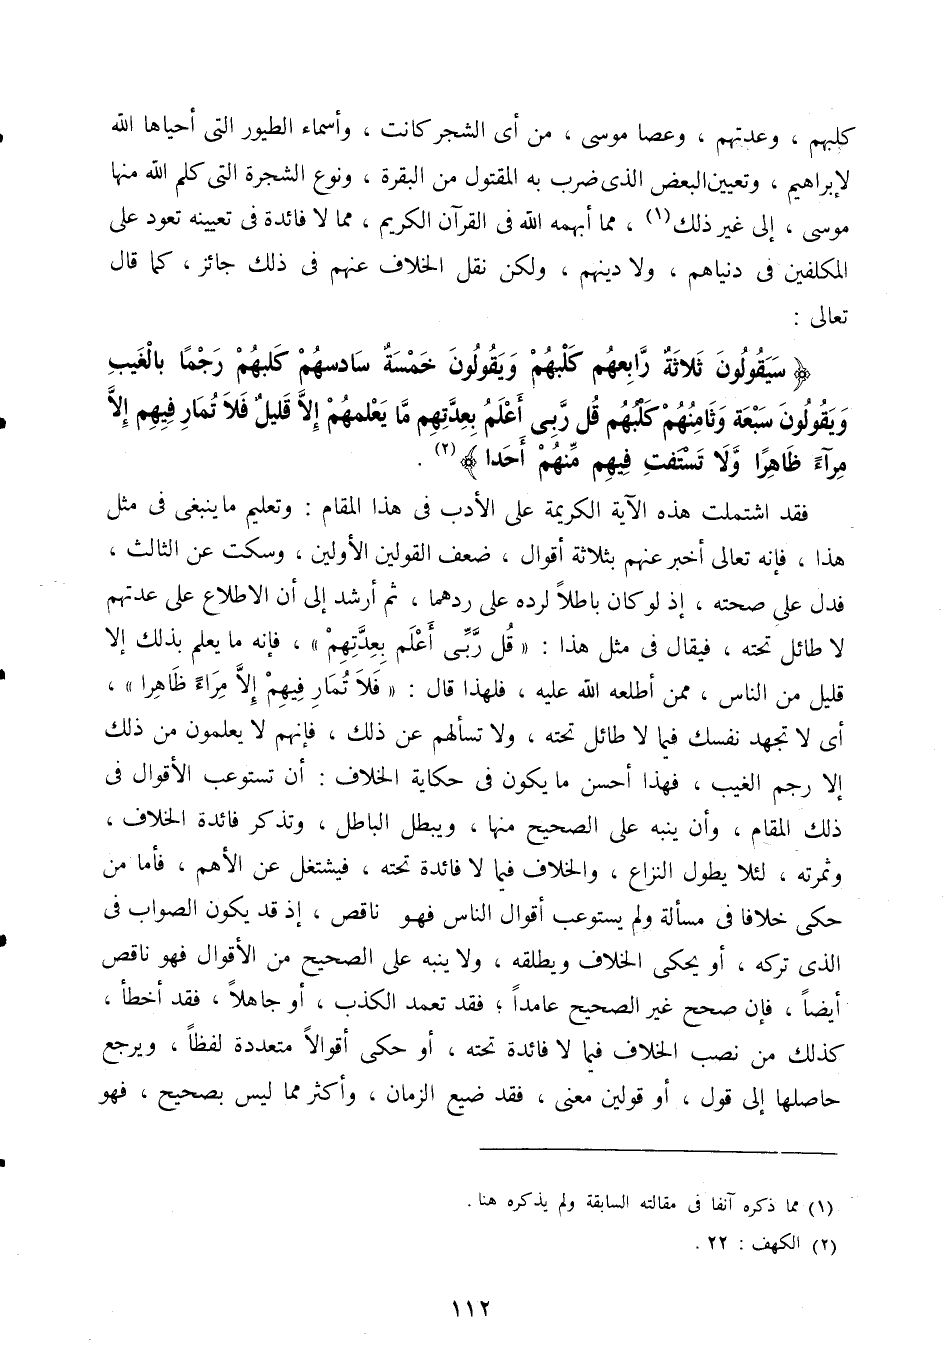 كلبهم ، وعدتهم ، وعصا موسى ، من أى الشجر كانت ، وأسماء الطيور التى أحياها الله
لإبراهيم ، وتعيين البعض الذى ضرب به المقتول من البقرة ، ونوع الشجرة التى كلم الله منها
موسى ، إلى غير ذلك(١) ، مما أبهمه الله فى القرآن الكريم ، مما لا فائدة فى تعيينه تعود على
المكلفين فى دنياهم ، ولا دينهم ، ولكن نقل الخلاف عنهم فى ذلك جائز ، كما قال
تعالى :
﴿ سَيَقُولُونَ ثَلاثَةٌ رَّابِعهُم كَلْبهُمْ وَيَقُولُونَ خَمْسَةٌ سَادسهُمْ كَلبهُمْ رَجْمًا بالْغَيبِ
وَيَقُولُونَ سَبْعَة وَثَامِنُهُمْ كَلْبُهُم قُل رَّبِى أَعْلَمُ بِعِدَّتِهِم مَّا يَعْلمهُمْ إِلاَّ قَلِيلٌ فَلاَ تُمَارِ فِيهِم إِلاَّ
مِرآءً ظَاهِرًا وَّلَا تَسْتَفتِ فِيهِم مِّنهُمْ أَحَدا ﴾(٢) .
فقد اشتملت هذه الآية الكريمة على الأدب فى هذا المقام : وتعليم ما ينبغى فى مثل
هذا ، فإنه تعالى أخبر عنهم بثلاثة أقوال ، ضعف القولين الأولين ، وسكت عن الثالث ،
فدل على صحته ، إذ لو كان باطلاً لرده على ردهما ، ثم أرشد إلى أن الاطلاع على عدتهم
لا طائل تحته ، فيقال فى مثل هذا : « قُل رَّبِّى أَعْلَم بِعِدَّتِهِمْ » ، فإنه ما يعلم بذلك إلا
قليل من الناس ، ممن أطلعه الله عليه ، فلهذا قال : « فَلاَ تُمَارِ فِيهِمْ إِلاَّ مِرَاءً ظَاهِرا » ،
أى لا تجهد نفسك فيما لا طائل تحته ، ولا تسألهم عن ذلك ، فإنهم لا يعلمون من ذلك
إلا رجم الغيب ، فهذا أحسن ما يكون فى حكاية الخلاف : أن تستوعب الأقوال فى
ذلك المقام ، وأن ينبه على الصحيح منها ، ويبطل الباطل ، وتذكر فائدة الخلاف ،
وثمرته ، لئلا يطول النزاع ، والخلاف فيما لا فائدة تحته ، فيشتغل عن الأهم ، فأما من
حكى خلافا فى مسألة ولم يستوعب أقوال الناس فهو ناقص ، إذ قد يكون الصواب فى
الذى تركه ، أو يحكى الخلاف ويطلقه ، ولا ينبه على الصحيح من الأقوال فهو ناقص
أيضاً ، فإن صحح غير الصحيح عامداً ؛ فقد تعمد الكذب ، أو جاهلاً ، فقد أخطأ ،
كذلك من نصب الخلاف فيما لا فائدة تحته ، أو حكى أقوالاً متعددة لفظاً ، ويرجع
حاصلها إلى قول ، أو قولين معنى ، فقد ضيع الزمان ، وأكثر مما ليس بصحيح ، فهو
(١) مما ذكره آنفا فى مقالته السابقة ولم يذكره هنا .
(٢) الكهف : ٢٢ .
١١٢